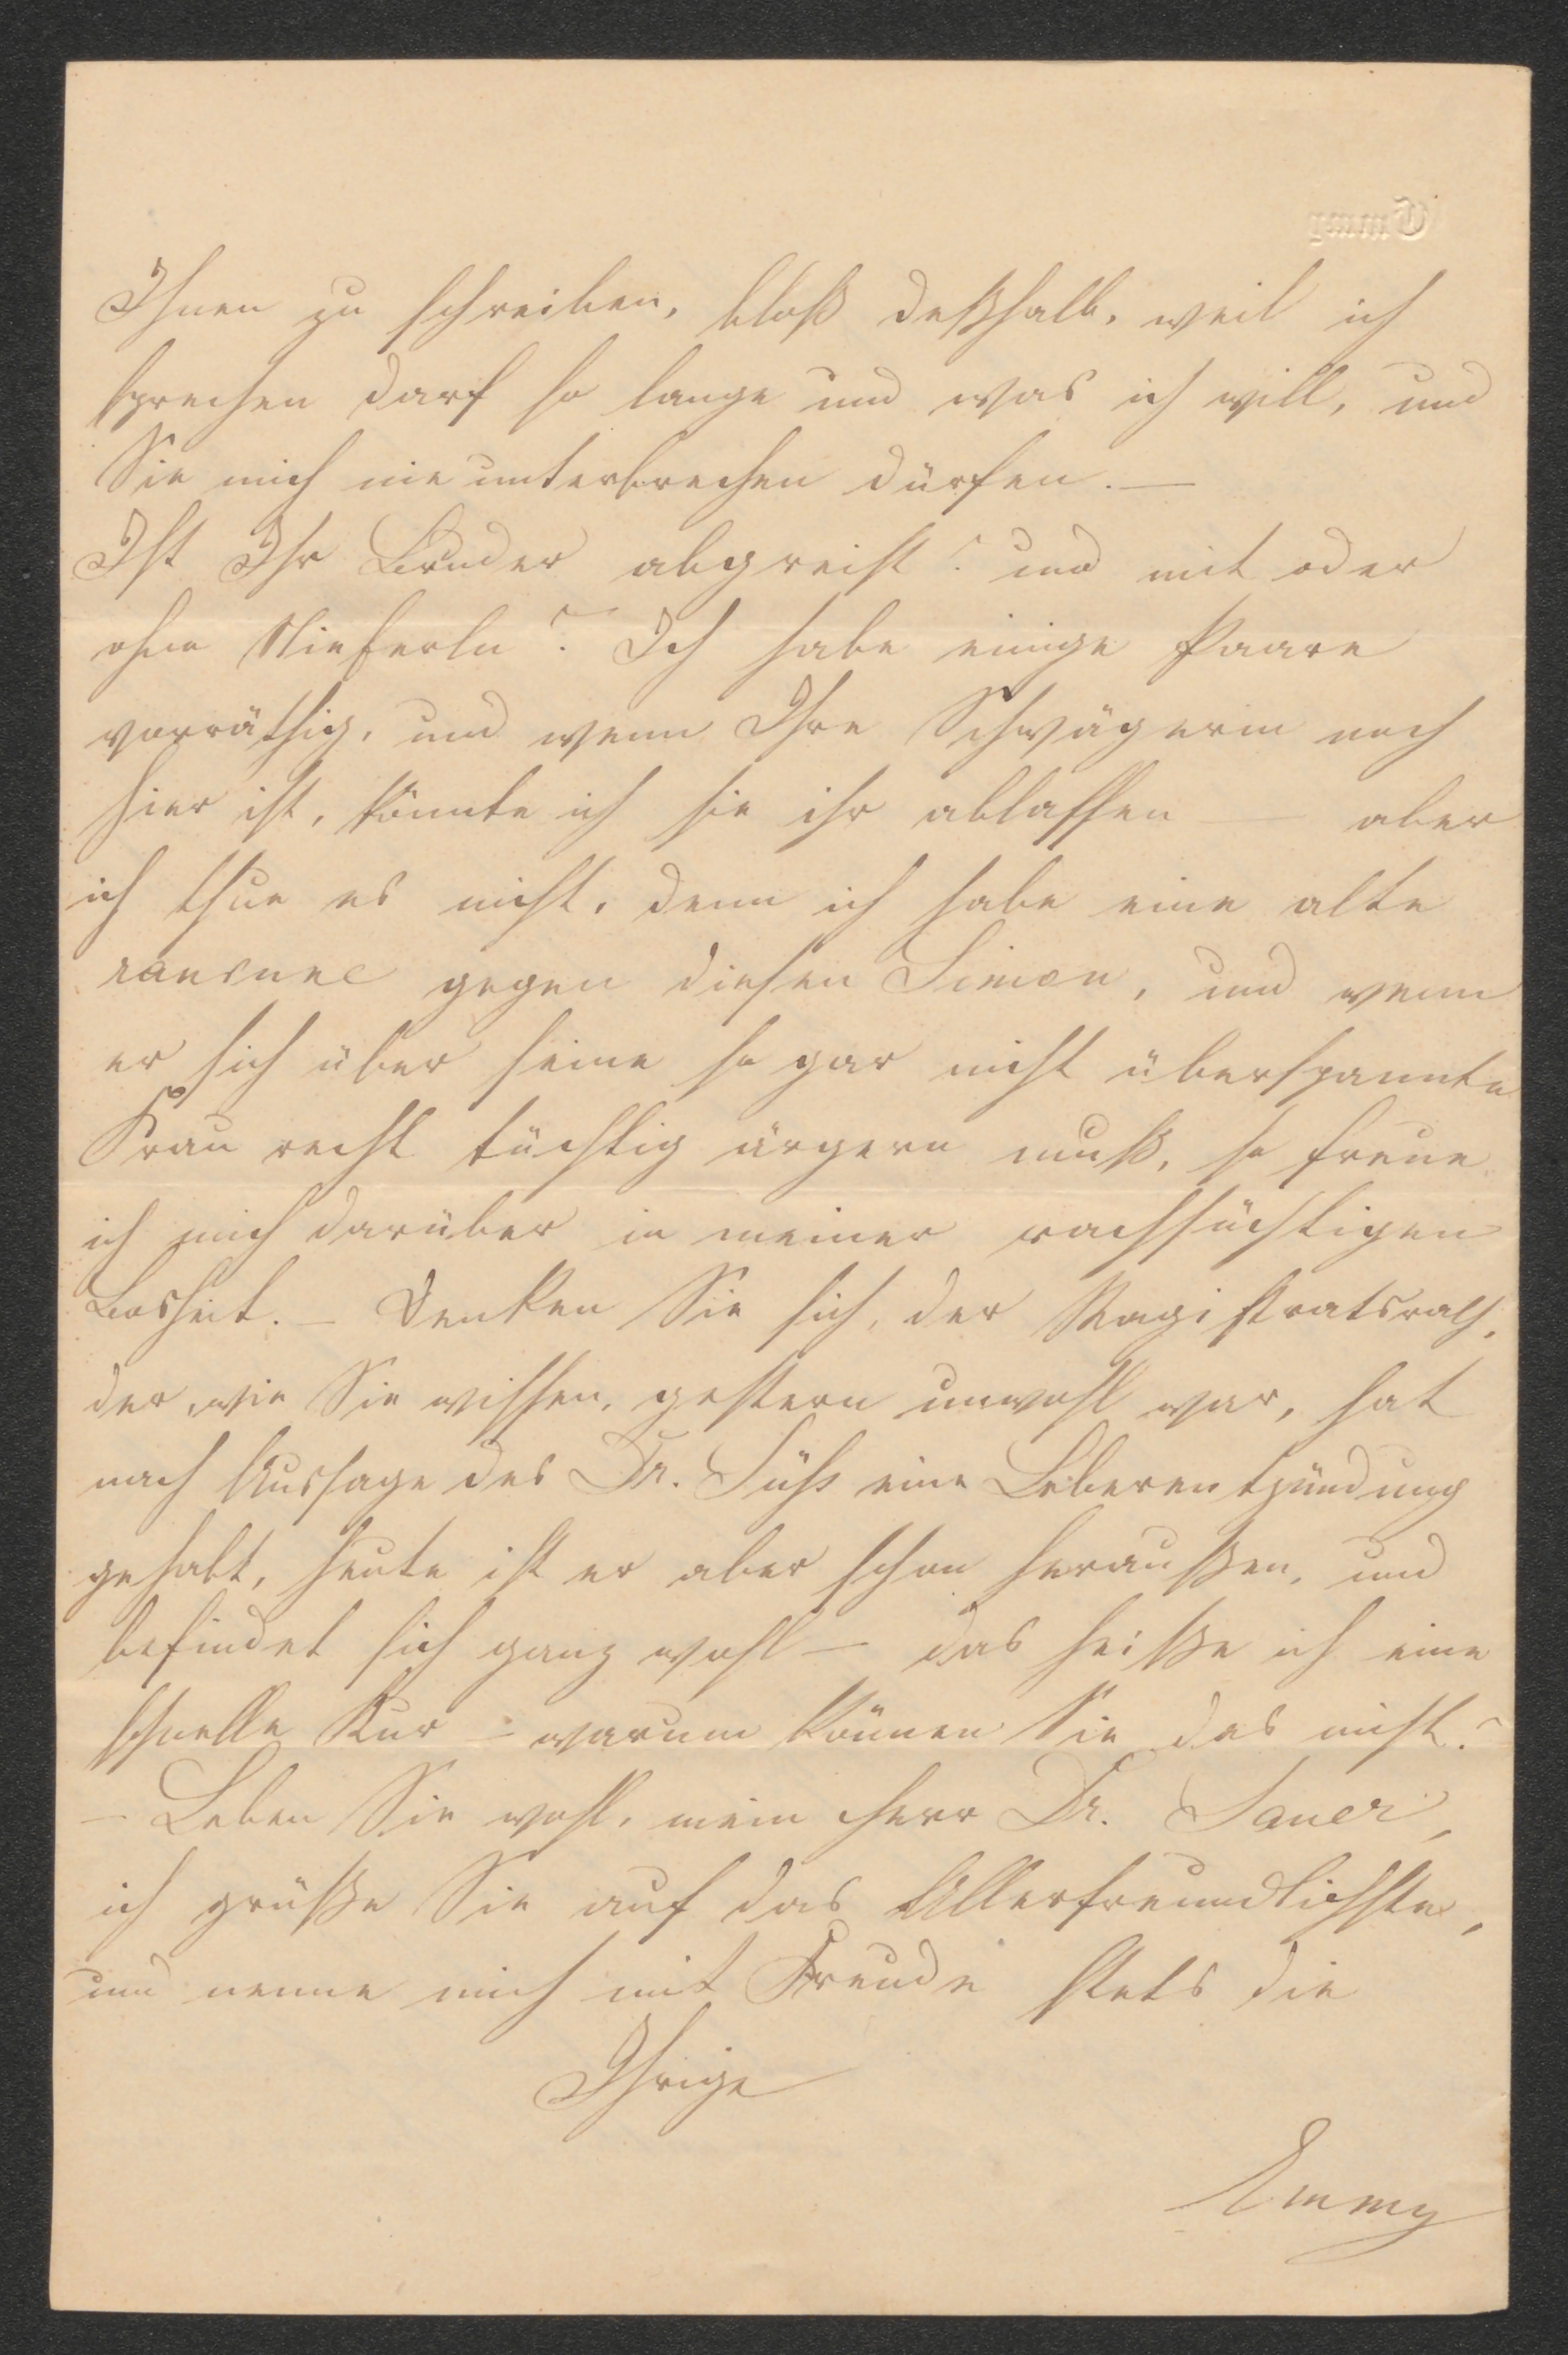 Emmy
Ihnen zu schreiben, bloß deßhalb, weil ich
sprechen darf so lange und was ich will, und
Sie mich nie unterbrechen dürfen. —
Ist Ihr Bruder abgereist? und mit oder
ohne Stieferln? Ich habe einige Paare
vorräthig, und wenn Ihre Schwägerin noch
hier ist, könnte ich sie ihr ablassen — aber
ich thue es nicht, denn ich habe eine alte
rancune gegen diesen Simon, und wenn
er sich über seine so gar nicht überspannte
Frau recht tüchtig ärgern muß, so freue
ich mich darüber in meiner rachsüchtigen
Bosheit. – Denken Sie sich, der Magistratsrath,
der, wie Sie wissen, gestern unwohl war, hat
nach Aussage des Dr. Süß eine Leberentzündung
gehabt, heute ist er aber schon heraußen, und
befindet sich ganz wohl – das heiße ich eine
schnelle Kur – warum können Sie das nicht?
– Leben Sie wohl, mein Herr Dr. Sauer,
ich grüße Sie auf das Allerfreundlichste,
und nenne mich mit Freude stets die
Ihrige
Emmy